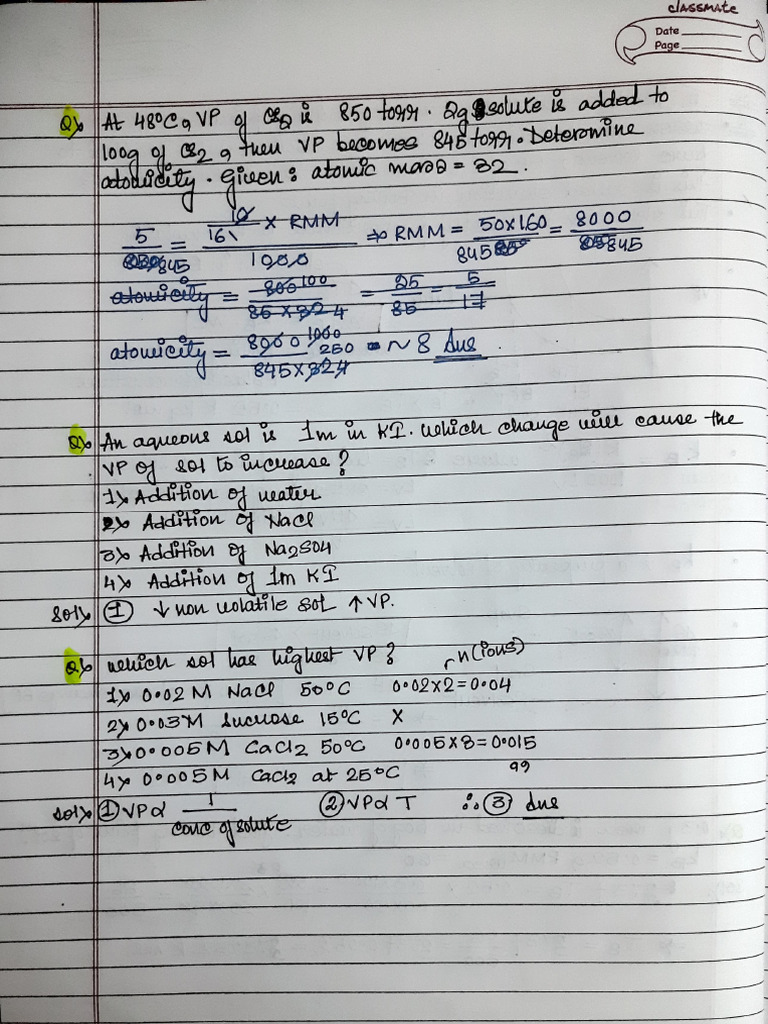 classmate
Date
Page
Q) At 48°C, VP of CS2 is 850 torr. 2g solute is added to
100g of CS2, then VP becomes 845 torr. Determine
atomicity. Given: atomic mass = 32.
5/845 = × RMM / 1000 ⇒ RMM = 50×160/845 = 8000/845
atomicity = 100 / 85×32 4 = 25/85 = 5/17
atomicity = 8000 1000 250 / 845×32 4 = ~ 8 Ans.
Q) An aqueous sol is 1m in KI. Which change will cause the
VP of sol to increase?
1) Addition of water
2) Addition of NaCl
3) Addition of Na2SO4
4) Addition of 1m KI
Sol) ① ↓ non volatile sol ↑ VP.
Q) which sol has highest VP? n(ions)
1) 0.02 M NaCl 50°C 0.02×2=0.04
2) 0.03M sucrose 15°C X
3) 0.005M CaCl2 50°C 0.005×3=0.015
4) 0.005M CaCl2 at 25°C ,,
Sol) ① VP∝ 1/conc of solute ② VP∝ T ∴ ③ Ans